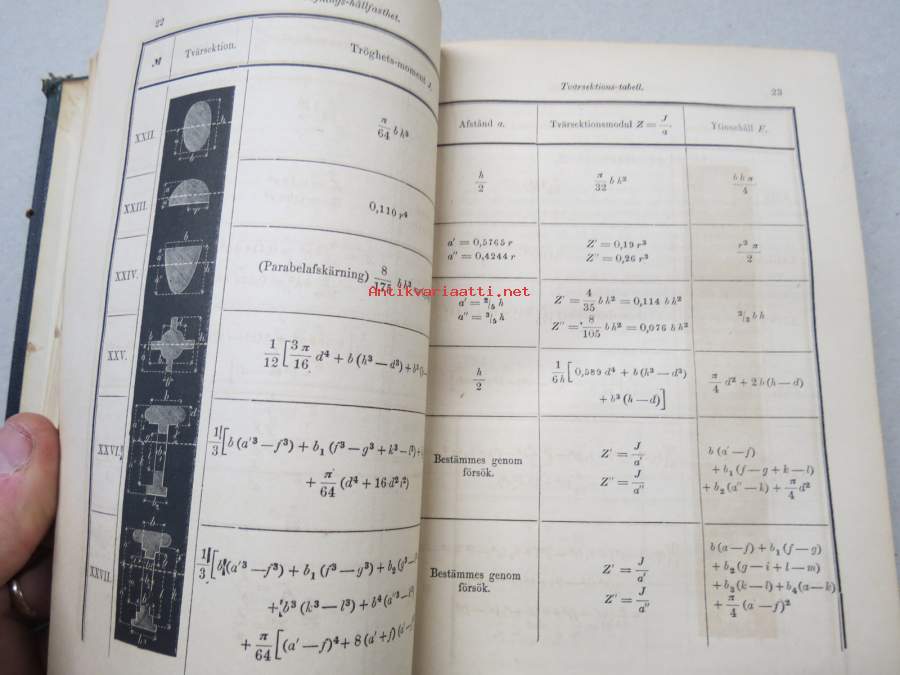 22
hållfasthet.
№ Tvärsektion. Tröghets-moment J.
XXII. π/64 b h³
XXIII. 0,110 r⁴
XXIV. (Parabelafskärning) 8/175 b h³
XXV. 1/12 [ 3 π/16 d⁴ + b (h³ — d³) + b³ (
XXVI. 1/3 [ b (a'³ — f³) + b₁ (f³ — g³ + k³ — l³) +
+ π/64 (d⁴ + 16 d² l²)
XXVII. 1/3 [ b (a'³ — f³) + b₁ (f³ — g³) + b₂ (g³ —
+ b³ (k³ — l³) + b⁴ (a''³ — l³)
+ π/64 [ (a' — f)⁴ + 8 (a' + f) (a' — f)
Tvärsektions-tabell. 23
Afstånd a. Tvärsektionsmodul Z = J/a. Ytinnehåll F.
h/2 π/32 b h² b h π/4
a' = 0,5765 r Z' = 0,19 r³ r² π/2
a'' = 0,4244 r Z'' = 0,26 r³
a' = ²/₅ h Z' = 4/35 b h² = 0,114 b h² ²/₃ b h
a'' = ³/₅ h Z'' = 8/105 b h² = 0,076 b h²
h/2 1/6h [ 0,589 d⁴ + b (h³ — d³) π/4 d² + 2 b (h — d)
+ b³ (h — d) ]
Bestämmes genom försök. Z' = J/a' b (a' — f)
+ b₁ (f — g + k — l)
Z'' = J/a'' + b₂ (a'' — k) + π/4 d²
Bestämmes genom försök. Z' = J/a' b (a — f) + b₁ (f — g)
+ b₂ (g — i + l — m)
Z'' = J/a'' + b₃ (k — l) + b₄ (a — k)
+ π/4 (a' — f)²
Antikvariaatti.net